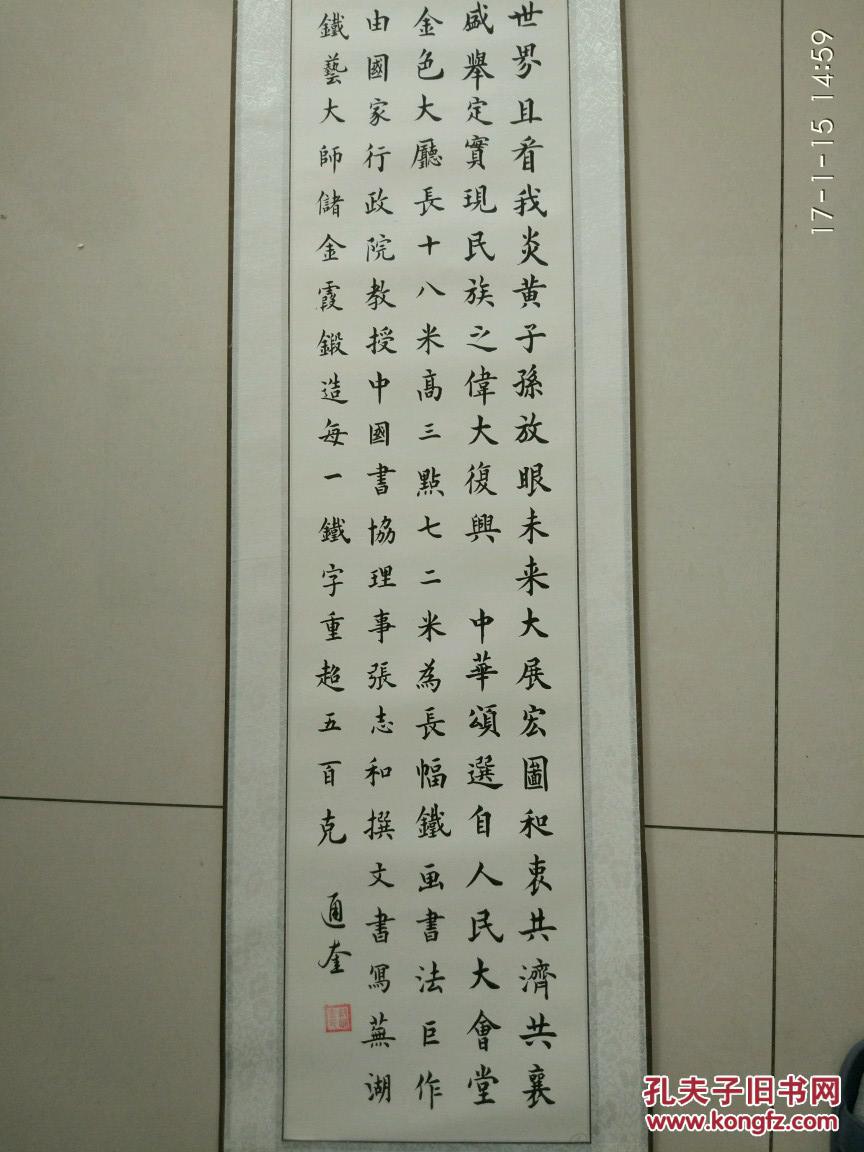 世界且看我炎黄子孫放眼未来大展宏圖和衷共濟共襄
盛舉定實現民族之偉大復興 中華頌選自人民大會堂
金色大廳長十八米高三點七二米為長幅鐵画書法巨作
由國家行政院教授中國書協理事張志和撰文書寫蕪湖
鐵藝大師儲金霞鍛造每一鐵字重超五百克 通奎
17-1-15 14:59
孔夫子旧书网
www.kongfz.com